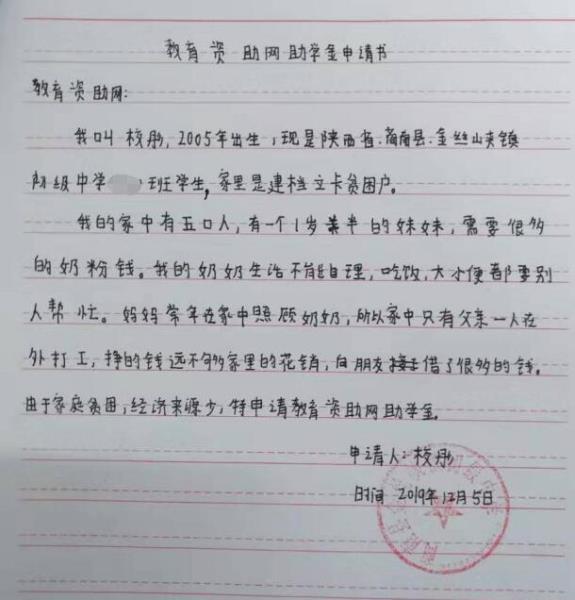 教育资助网助学金申请书
教育资助网:
我叫校彤,2005年出生,现是陕西省.商南县.金丝山夹镇
初级中学 班学生,家里是建档立卡贫困户。
我的家中有五口人,有一个1岁半的妹妹,需要很多
的奶粉钱。我的奶奶生活不能自理,吃饭,大小便都要别
人帮忙。妈妈常年在家中照顾奶奶,所以家中只有父亲一人在
外打工,挣的钱远不够家里的花销,向朋友借了很多的钱。
由于家庭贫困,经济来源少,特申请教育资助网助学金。
申请人:校彤
时间 2019年12月5日